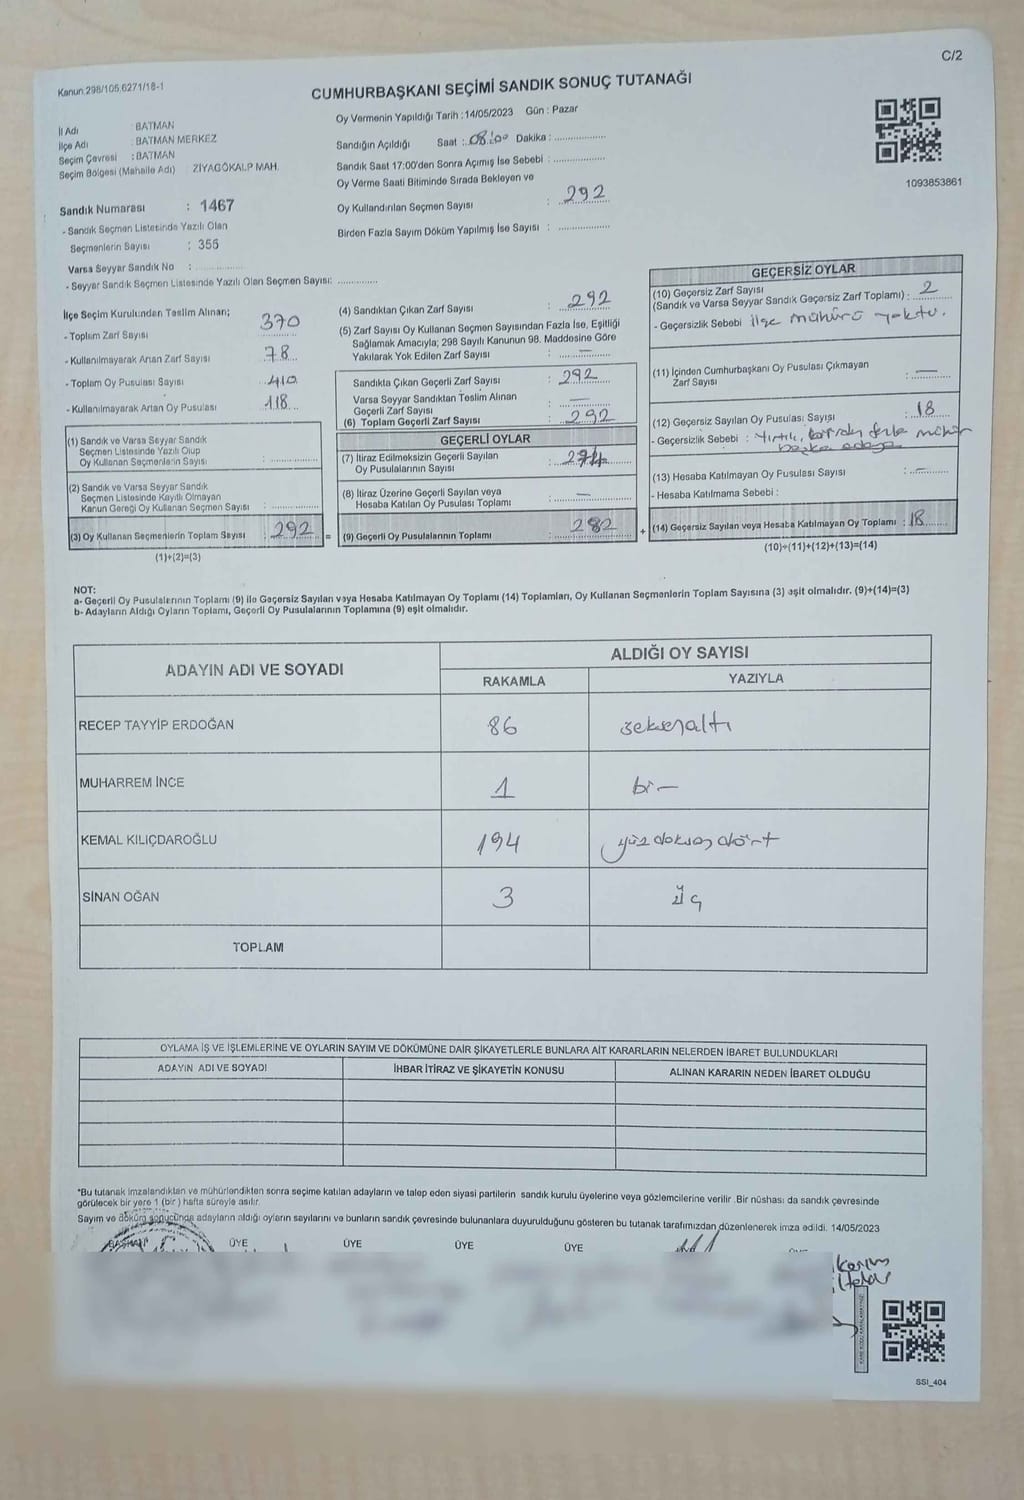 C/2
Kanun.298/105,6271/18-1
CUMHURBAŞKANI SEÇİMİ SANDIK SONUÇ TUTANAĞI
Oy Vermenin Yapıldığı Tarih :14/05/2023 Gün : Pazar
İl Adı : BATMAN
İlçe Adı : BATMAN MERKEZ
Seçim Çevresi : BATMAN
Seçim Bölgesi (Mahalle Adı) ZİYAGÖKALP MAH.
Sandığın Açıldığı Saat : 08:00 Dakika :
Sandık Saat 17:00'den Sonra Açımış İse Sebebi :
Oy Verme Saati Bitiminde Sırada Bekleyen ve
Oy Kullandırılan Seçmen Sayısı : 292
Birden Fazla Sayım Döküm Yapılmış İse Sayısı :
1093853861
Sandık Numarası : 1467
- Sandık Seçmen Listesinde Yazılı Olan
Seçmenlerin Sayısı : 355
Varsa Seyyar Sandık No :
- Seyyar Sandık Seçmen Listesinde Yazılı Olan Seçmen Sayısı:
İlçe Seçim Kurulundan Teslim Alınan;
- Toplam Zarf Sayısı 370
- Kullanılmayarak Artan Zarf Sayısı 78
- Toplam Oy Pusulası Sayısı 410
- Kullanılmayarak Artan Oy Pusulası 118
(1) Sandık ve Varsa Seyyar Sandık
Seçmen Listesinde Yazılı Olup
Oy Kullanan Seçmenlerin Sayısı :
(2) Sandık ve Varsa Seyyar Sandık
Seçmen Listesinde Kayıtlı Olmayan
Kanun Gereği Oy Kullanan Seçmen Sayısı :
(3) Oy Kullanan Seçmenlerin Toplam Sayısı : 292 =
(1)+(2)=(3)
(4) Sandıktan Çıkan Zarf Sayısı : 292
(5) Zarf Sayısı Oy Kullanan Seçmen Sayısından Fazla İse, Eşitliği
Sağlamak Amacıyla; 298 Sayılı Kanunun 98. Maddesine Göre
Yakılarak Yok Edilen Zarf Sayısı : —
Sandıkta Çıkan Geçerli Zarf Sayısı : 292
Varsa Seyyar Sandıktan Teslim Alınan
Geçerli Zarf Sayısı : —
(6) Toplam Geçerli Zarf Sayısı : 292
GEÇERLİ OYLAR
(7) İtiraz Edilmeksizin Geçerli Sayılan
Oy Pusulalarının Sayısı :
(8) İtiraz Üzerine Geçerli Sayılan veya
Hesaba Katılan Oy Pusulası Toplamı : —
(9) Geçerli Oy Pusulalarının Toplamı : 282 +
GEÇERSİZ OYLAR
(10) Geçersiz Zarf Sayısı
(Sandık ve Varsa Seyyar Sandık Geçersiz Zarf Toplamı) : 2
- Geçersizlik Sebebi ilçe mühürü yoktu.
(11) İçinden Cumhurbaşkanı Oy Pusulası Çıkmayan
Zarf Sayısı : —
(12) Geçersiz Sayılan Oy Pusulası Sayısı : 18
- Geçersizlik Sebebi : Yırtık, fazla mühür
başka adaya
(13) Hesaba Katılmayan Oy Pusulası Sayısı : —
- Hesaba Katılmama Sebebi :
(14) Geçersiz Sayılan veya Hesaba Katılmayan Oy Toplamı : 18
(10)+(11)+(12)+(13)=(14)
NOT:
a- Geçerli Oy Pusulalarının Toplamı (9) ile Geçersiz Sayılan veya Hesaba Katılmayan Oy Toplamı (14) Toplamları, Oy Kullanan Seçmenlerin Toplam Sayısına (3) eşit olmalıdır. (9)+(14)=(3)
b- Adayların Aldığı Oyların Toplamı, Geçerli Oy Pusulalarının Toplamına (9) eşit olmalıdır.
ADAYIN ADI VE SOYADI
ALDIĞI OY SAYISI
RAKAMLA YAZIYLA
RECEP TAYYİP ERDOĞAN 86 seksenaltı
MUHARREM İNCE 1 bir
KEMAL KILIÇDAROĞLU 194 yüzdoksandört
SİNAN OĞAN 3 üç
TOPLAM
OYLAMA İŞ VE İŞLEMLERİNE VE OYLARIN SAYIM VE DÖKÜMÜNE DAİR ŞİKAYETLERLE BUNLARA AİT KARARLARIN NELERDEN İBARET BULUNDUKLARI
ADAYIN ADI VE SOYADI İHBAR İTİRAZ VE ŞİKAYETİN KONUSU ALINAN KARARIN NEDEN İBARET OLDUĞU
*Bu tutanak imzalandıktan ve mühürlendikten sonra seçime katılan adayların ve talep eden siyasi partilerin sandık kurulu üyelerine veya gözlemcilerine verilir .Bir nüshası da sandık çevresinde
görülecek bir yere 1 (bir ) hafta süreyle asılır.
Sayım ve döküm sonucunda adayların aldığı oyların sayılarını ve bunların sandık çevresinde bulunanlara duyurulduğunu gösteren bu tutanak tarafımızdan düzenlenerek imza edildi. 14/05/2023
BAŞKAN ÜYE ÜYE ÜYE ÜYE
SSI_404